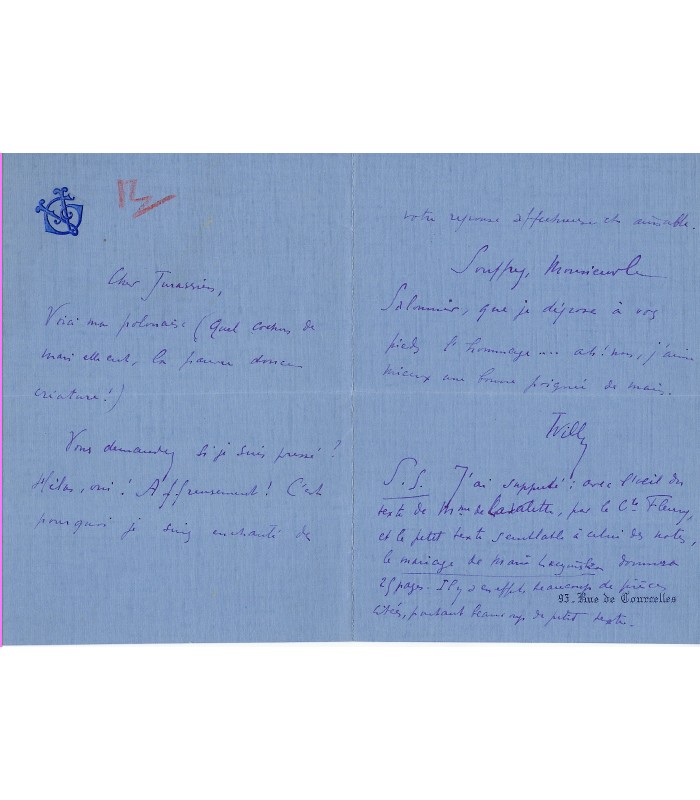 Cher Jurassien,
Voici ma polonaise (Quel cochon de
mari elle eut, la pauvre douce
créature!)
Vous demandez si je suis pressé?
Hélas, oui! Affreusement! C'est
pourquoi je suis enchanté de
votre réponse affectueuse et aimable.
Souffrez, Monsieur le
Salonnier, que je dépose à vos
pieds l'hommage... ah! non, j'aime
mieux une bonne poignée de main.
Willy
J'ai supputé: avec l'oeil du
texte de Mme de Lavalette, par le Cte Fleury,
et le petit texte semblable à celui des notes,
le mariage de Marie Leczinska donnera
25 pages. Il y a en effet beaucoup de pièces
citées, partant beaucoup de petit texte.
93, Rue de Courcelles